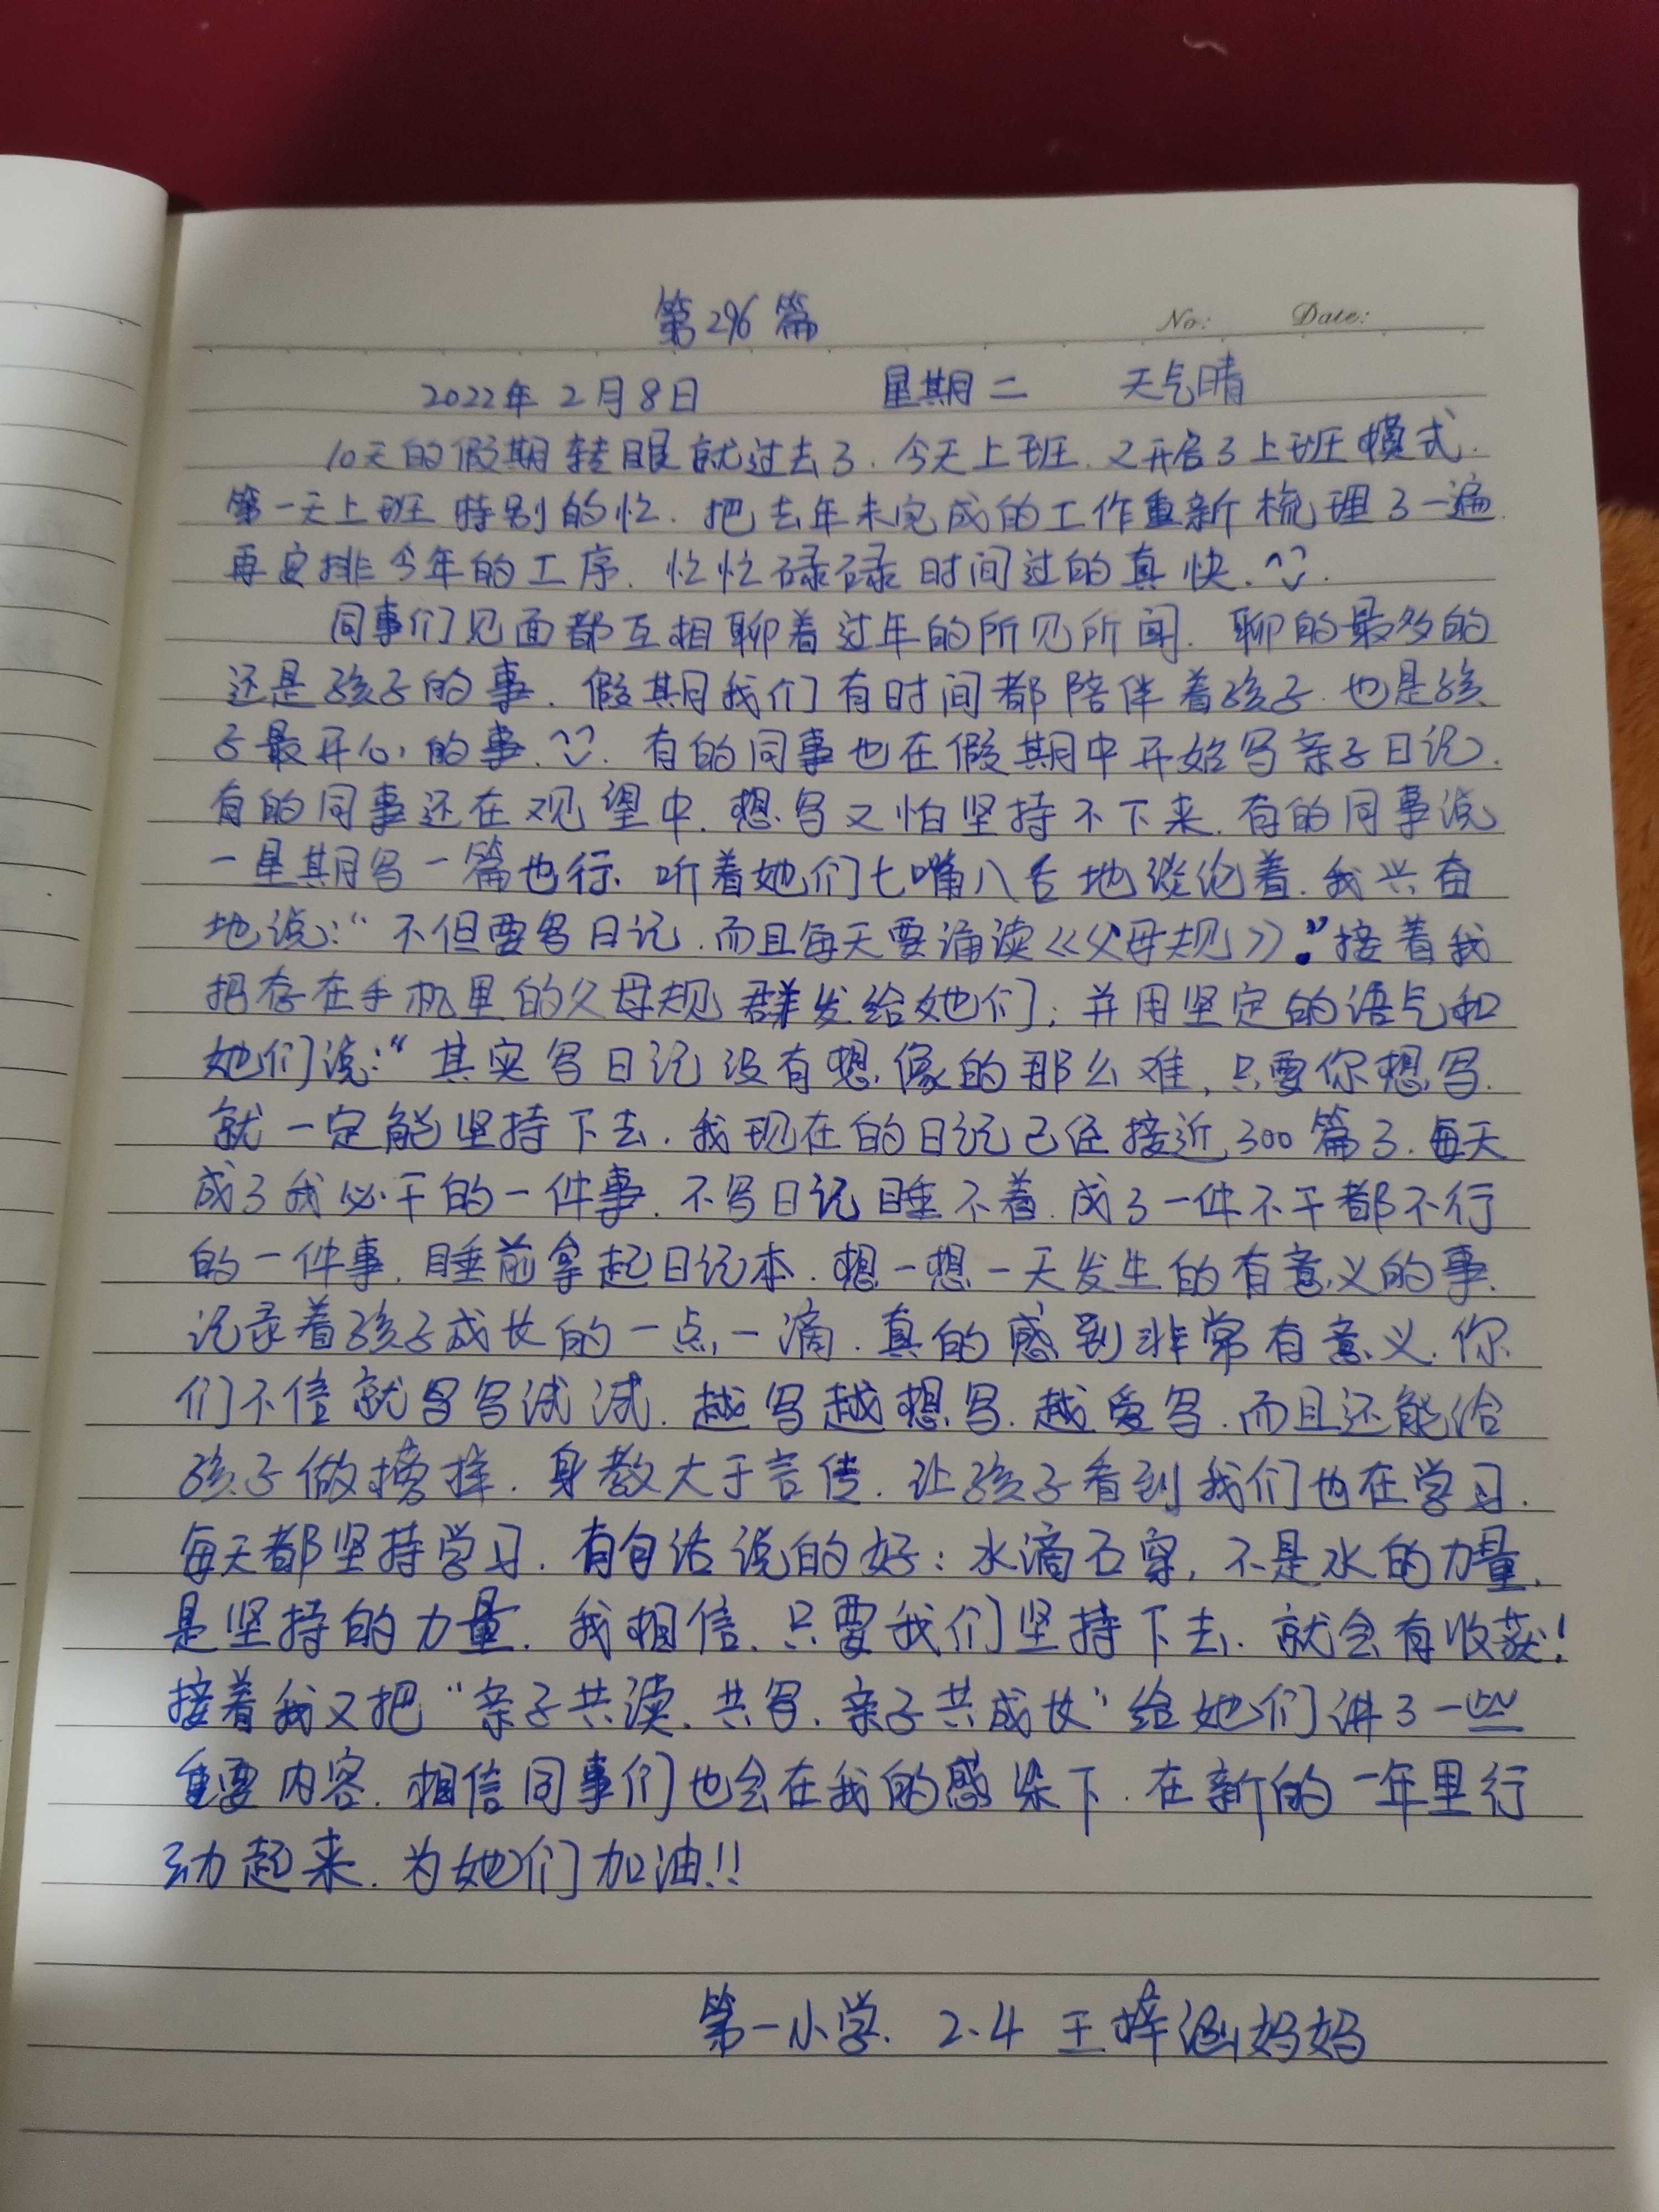 第296篇
No: Date:
2022年2月8日 星期二 天气晴
10天的假期转眼就过去了.今天上班.又开启了上班模式.
第一天上班特别的忙.把去年未完成的工作重新梳理了一遍.
再安排今年的工序.忙忙碌碌时间过的真快.
同事们见面都互相聊着过年的所见所闻.聊的最多的
还是孩子的事.假期我们有时间都陪伴着孩子.也是孩
子最开心的事.有的同事也在假期中开始写亲子日记.
有的同事还在观望中.想写又怕坚持不下来.有的同事说
一星期写一篇也行.听着她们七嘴八舌地谈论着.我兴奋
地说:“不但要写日记.而且每天要诵读《父母规》.”接着我
把存在手机里的父母规群发给她们;并用坚定的语气和
她们说:“其实写日记没有想像的那么难,只要你想写.
就一定能坚持下去.我现在的日记已经接近300篇了.每天
成了我必干的一件事.不写日记睡不着.成了一件不干都不行
的一件事.睡前拿起日记本.想一想一天发生的有意义的事.
记录着孩子成长的一点一滴.真的感到非常有意义.你
们不信就写写试试.越写越想写.越爱写.而且还能给
孩子做榜样.身教大于言传.让孩子看到我们也在学习.
每天都坚持学习.有句话说的好:水滴石穿,不是水的力量.
是坚持的力量.我相信.只要我们坚持下去.就会有收获!
接着我又把“亲子共读.共写.亲子共成长”给她们讲了一些
重要内容.相信同事们也会在我的感染下.在新的一年里行
动起来.为她们加油!!
第一小学. 2.4 王梓涵妈妈